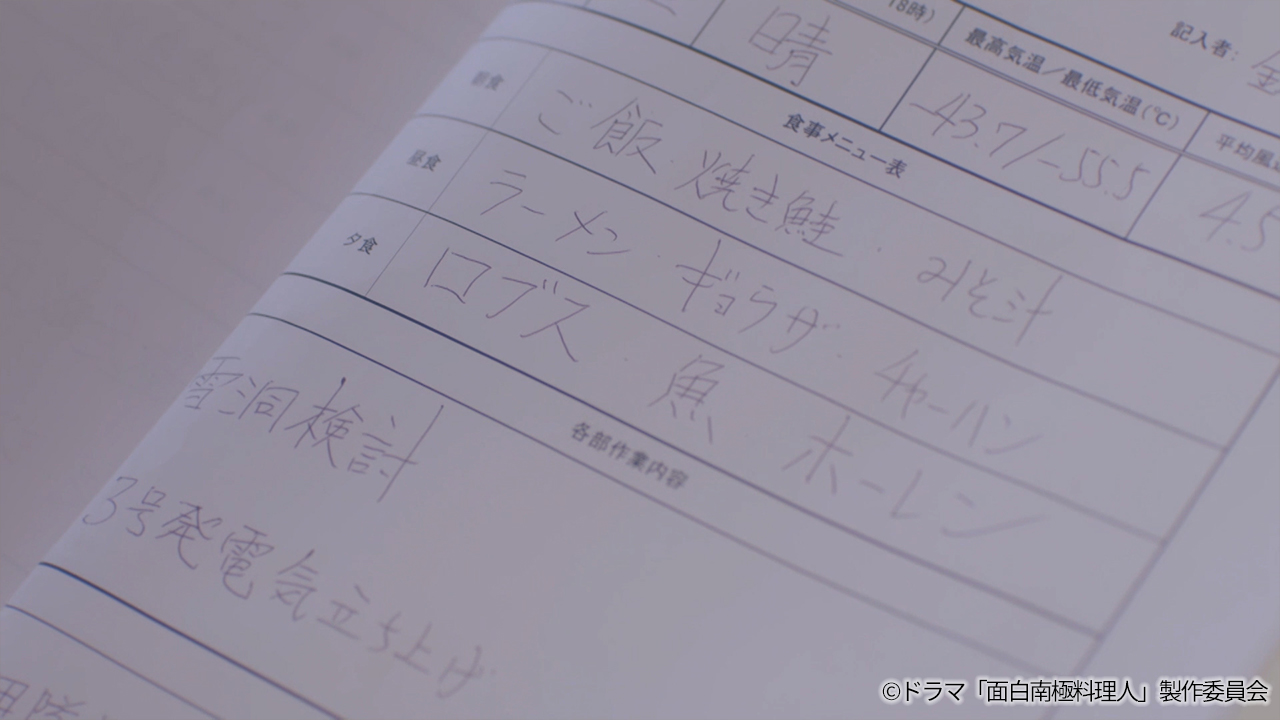 18時)
記入者:
晴
最高気温/最低気温(℃)
-43.7/-55.5
平均風
4.5
食事メニュー表
朝食
ご飯・焼き鮭・みそ汁
昼食
ラーメン・ギョウザ・チャーハン
夕食
ロブス・魚 ホーレン
各部作業内容
雪洞検討
3号発電気立ち上げ
©ドラマ「面白南極料理人」製作委員会